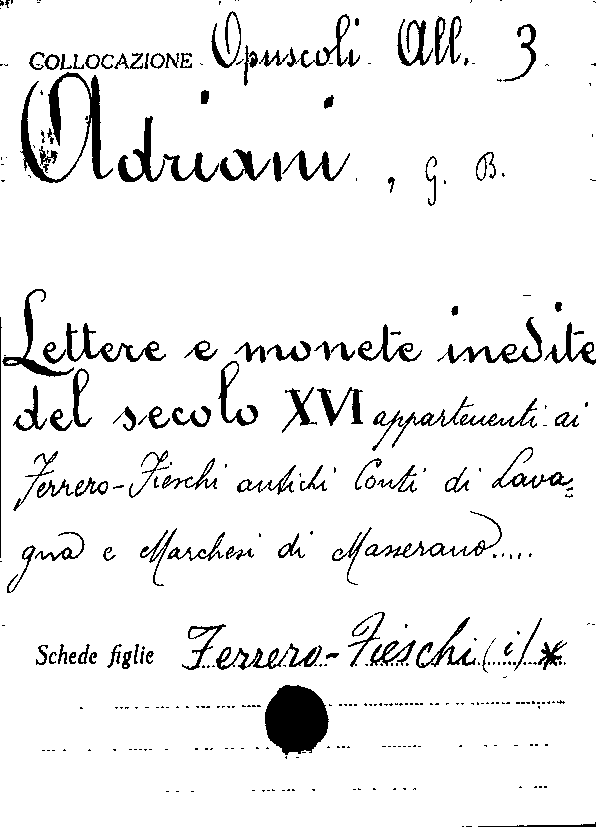 COLLOCAZIONE Opuscoli All. 3
Adriani, G. B.
Lettere e monete inedite
del secolo XVI appartenenti ai
Ferrero-Fieschi antichi Conti di Lava=
gna e Marchesi di Masserano.....
Schede figlie Ferrero-Fieschi (i) *